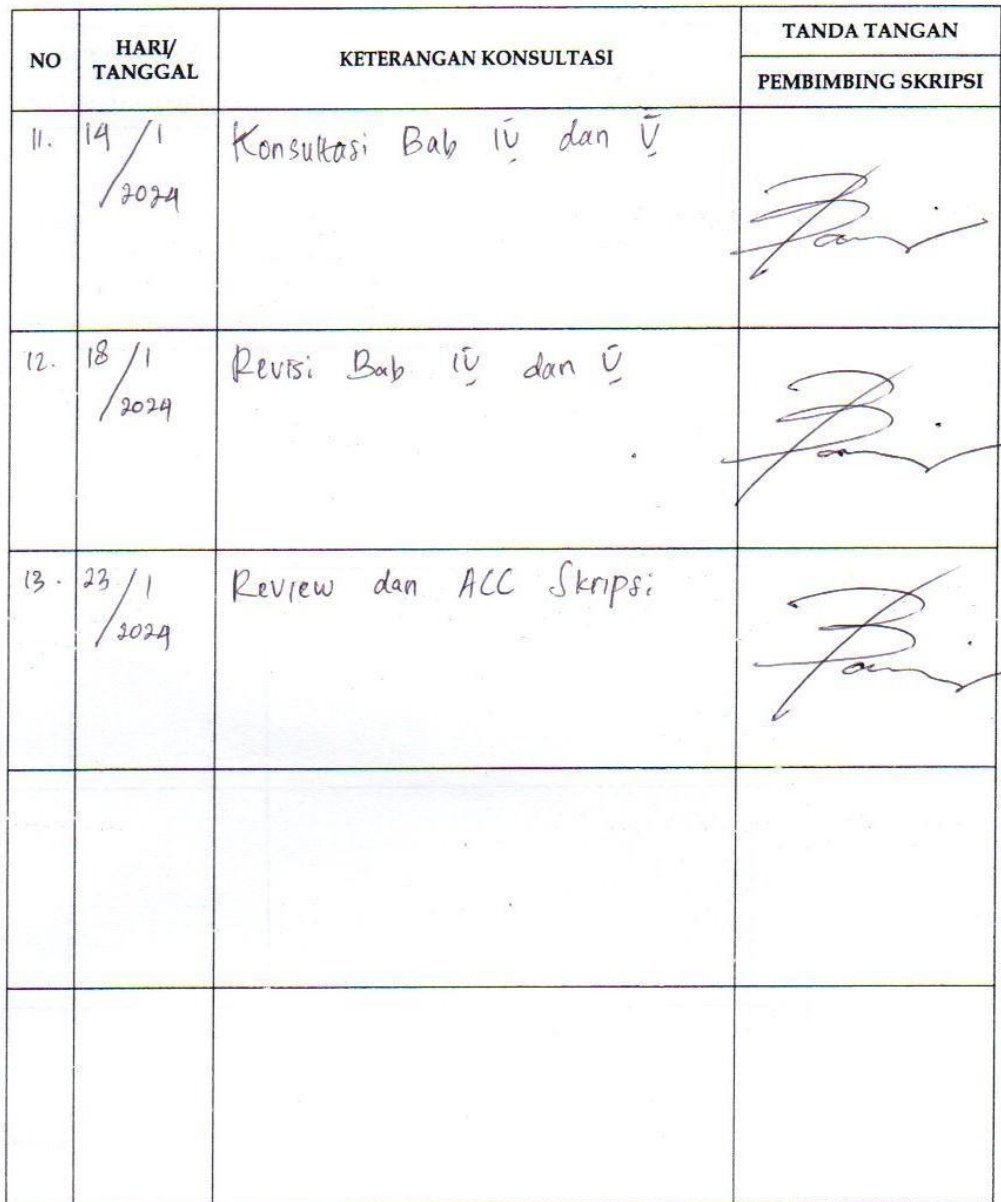 NO
HARI/
TANGGAL
KETERANGAN KONSULTASI
TANDA TANGAN
PEMBIMBING SKRIPSI
11.
14/1
2024
Konsultasi Bab IV dan V
12.
18/1
2024
Revisi Bab IV dan V
13.
23/1
2024
Review dan ACC Skripsi